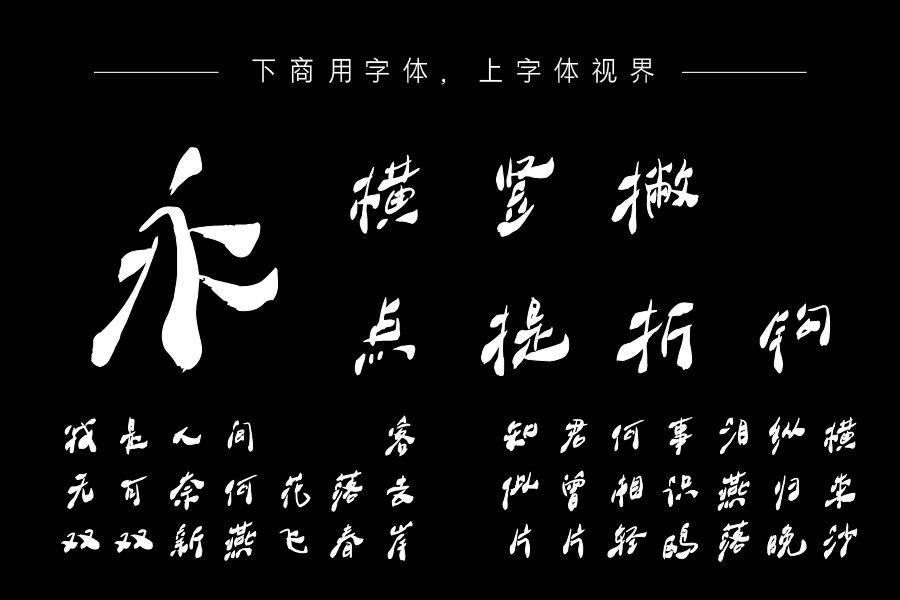 下商用字体，上字体视界
永
横 竖 撇
点 提 折 钩
我是人间 客 知君何事泪纵横
无可奈何花落去 似曾相识燕归来
双双新燕飞春岸 片片轻鸥落晚沙